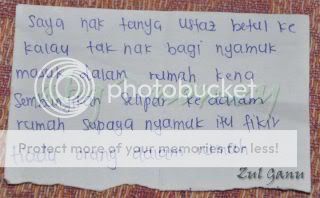 Saya nak tanya ustaz betul ke
kalau tak nak bagi nyamuk
masuk dalam rumah kena
photobucket
Selipar ke dalam
rumah supaya nyamuk itu fikir
Protect more of your memories for less!
orang dalam rumah
Zul Ganu